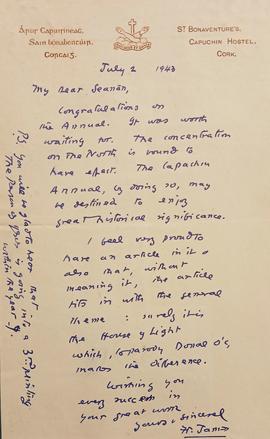 Áras Capuirineac,
Sain bonabencúir,
Corcaig.
St Bonaventure's,
Capuchin Hostel,
Cork.
July 2 1943
My dear Seanán,
Congratulations on
the Annual. It was worth
waiting for. The concentration
on the North is bound to
have effect. The Capuchin
Annual, by doing so, may
be destined to enjoy
great historical significance.
I feel very proud to
have an article in it &
also that, without
meaning it, the article
fits in with the general
theme: surely it is
the House of Light
which, to parody Donal O'G,
makes the difference.
Wishing you
every success in
your great work
Yours sincerely
Fr. James
P.S. You will be glad to hear that
The Person of Jesus is going into a 3rd printing
within the year. J.